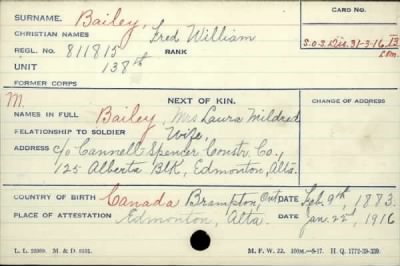 SURNAME. Bailey, CARD NO.
CHRISTIAN NAMES Fred William
REGL. NO. 811815 RANK S.O.S. Dis. 31-3-16. 13
UNIT 138th
FORMER CORPS
M. NEXT OF KIN. CHANGE OF ADDRESS
NAMES IN FULL Bailey, Mrs Laura Mildred
RELATIONSHIP TO SOLDIER Wife,
ADDRESS c/o Cannell Spencer Constr. Co.,
125 Alberta Blk, Edmonton, Alta.
COUNTRY OF BIRTH Canada Brampton, Ont DATE Feb. 9th, 1883.
PLACE OF ATTESTATION Edmonton, Alta. DATE Jan. 22d, 1916
M. F. W. 22. H. Q. 1772-39-339.